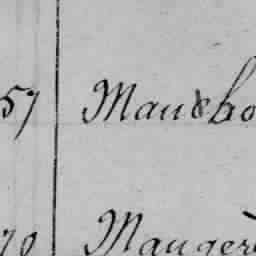 57 Maucho
70 Mauger